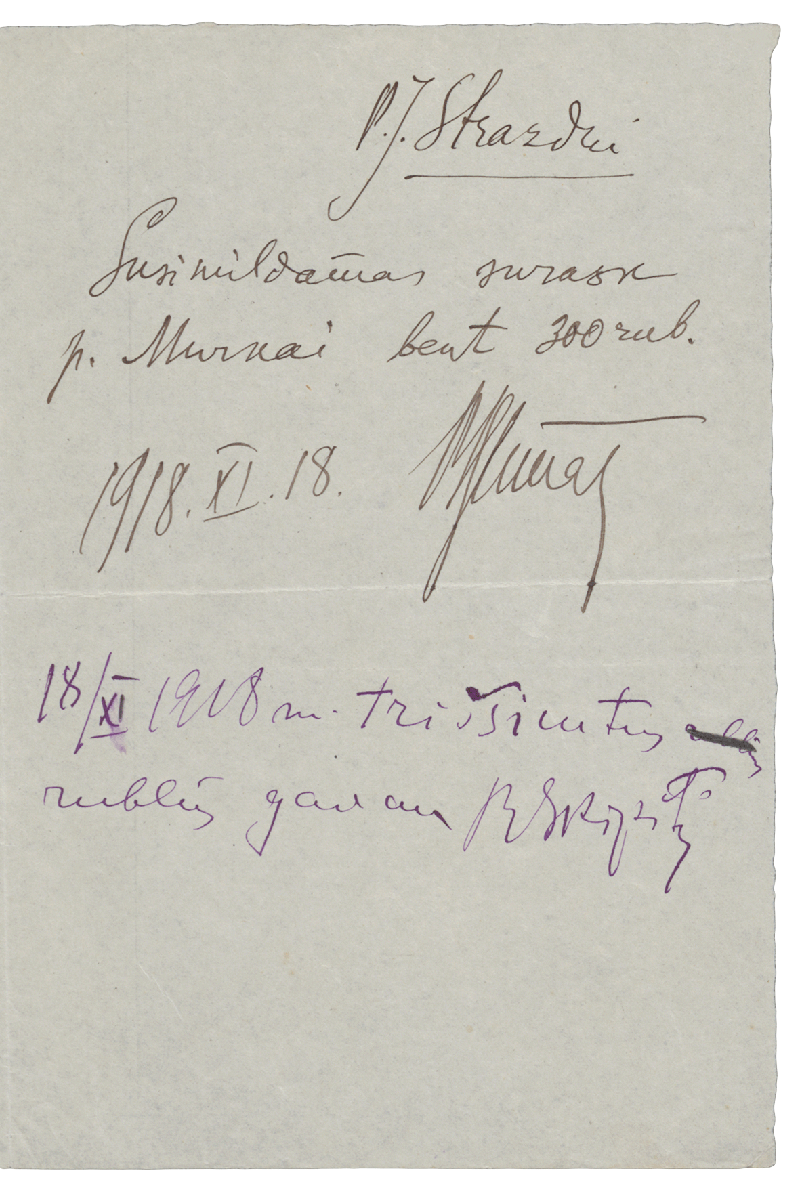 P. J. Strazdui
Susimildamas surask
p. Murkai bent 300 rub.
1918. XI. 18.
18/XI 1918 m. trišsimtus
rublių gavau